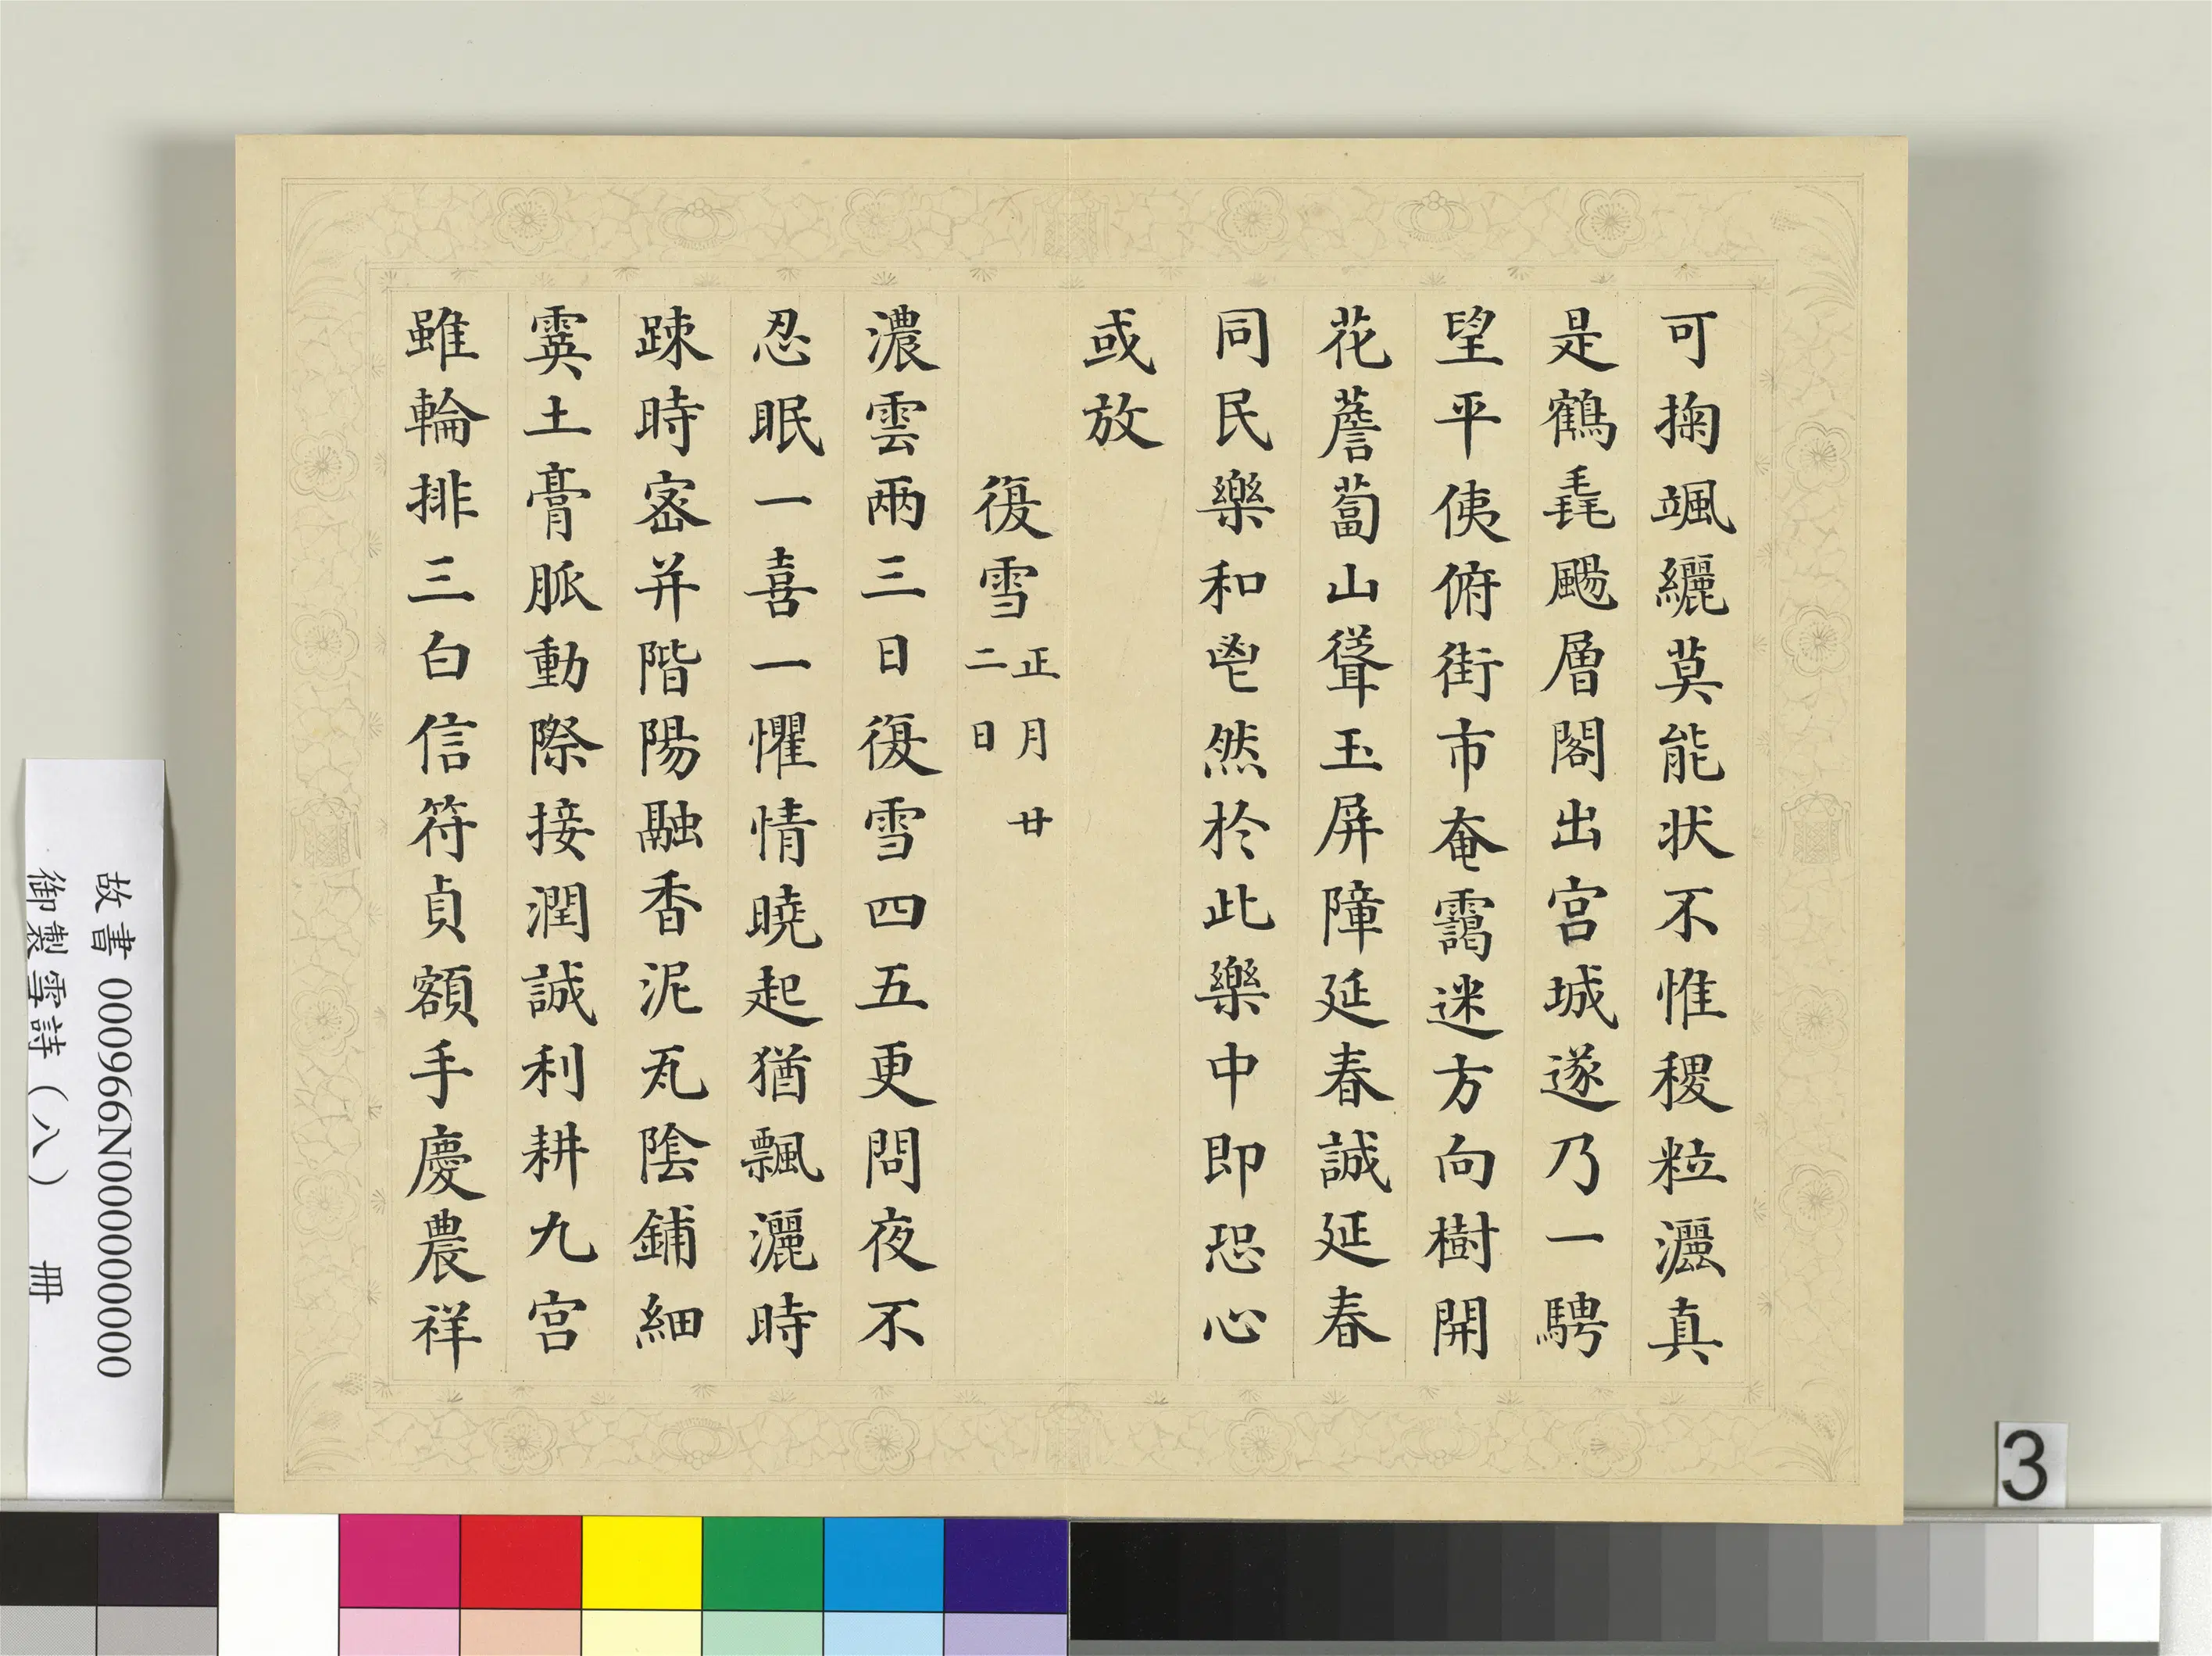 可掬颯纚莫能状不惟稷粒灑真
是鶴毳颺層閣出宫城遂乃一騁
望平侇俯街市奄靄迷方向樹開
花薝蔔山聳玉屏障延春誠延春
同民樂和鬯然於此樂中即恐心
或放
復雪正月廿
二日
濃雲兩三日復雪四五更問夜不
忍眠一喜一懼情曉起猶飄灑時
踈時宻并階陽融香泥瓦陰鋪細
霙土膏脈動際接潤誠利耕九宫
雖輪排三白信符貞額手慶農祥
故書 000966N000000000
御製雪詩(八) 冊
3